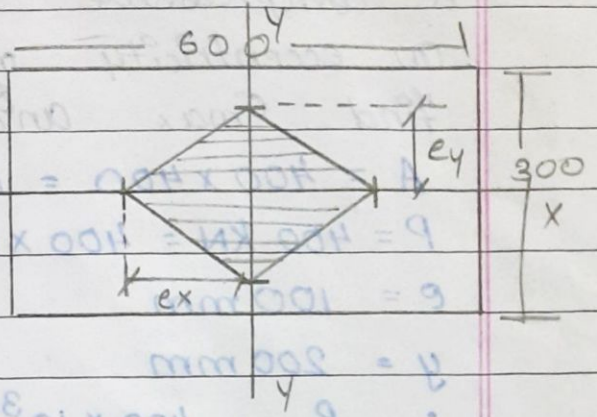 Y
600
ey
300
X
ex
Y